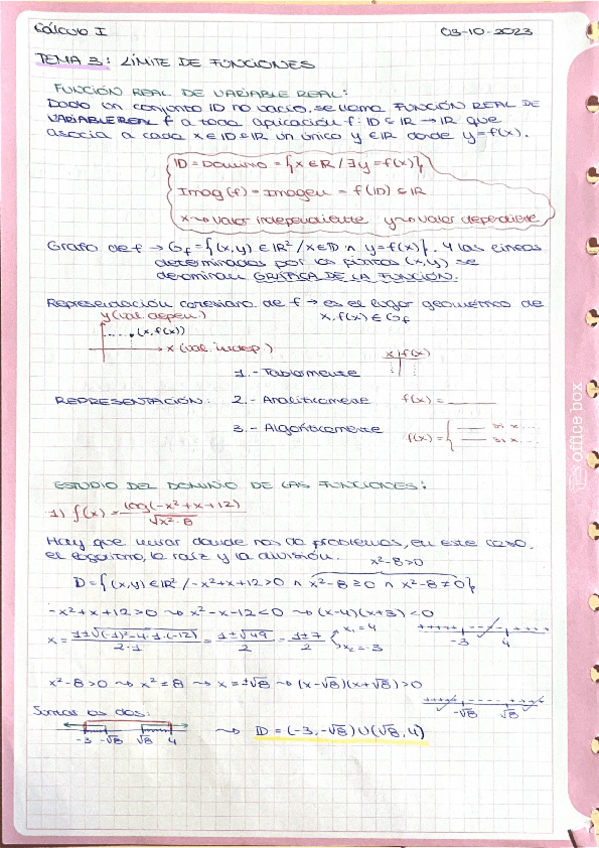 Cálculo I 03-10-2023
TEMA 3: LÍMITE DE FUNCIONES
FUNCIÓN REAL DE VARIABLE REAL:
Dado un conjunto ID no vacío, se llama FUNCIÓN REAL DE
VARIABLE REAL f a toda aplicación f: ID ⊆ IR → IR que
asocia a cada x ∈ ID ⊆ IR un único y ∈ IR donde y = f(x).
ID = Dominio = {x ∈ IR / ∃ y = f(x)}
Imag(f) = Imagen = f(ID) ⊆ IR
x ⇝ valor independiente y ⇝ valor dependiente
Grafo de f → G_f = {(x,y) ∈ IR² / x ∈ ID ∧ y = f(x)}. Y las líneas
determinadas por los puntos (x,y) se
denominan GRÁFICA DE LA FUNCIÓN.
Representación cartesiana de f → es el lugar geométrico de
x, f(x) ∈ G_f
y (val. depen.)
(x, f(x))
x (val. indep.)
x f(x)
1.- Tablamente
REPRESENTACIÓN: 2.- Analíticamente f(x) = ____
3.- Algoríticamente f(x) = { ____ si x...
____ si x...
office box
ESTUDIO DEL DOMINIO DE LAS FUNCIONES:
1) f(x) = log(-x²+x+12) / √(x²-8)
Hay que mirar donde nos da problemas, en este caso,
el logaritmo, la raíz y la división.
x²-8>0
D = {(x,y) ∈ IR² / -x²+x+12>0 ∧ x²-8≥0 ∧ x²-8≠0}
-x²+x+12>0 ⇝ x²-x-12<0 ⇝ (x-4)(x+3)<0
x = (1±√((-1)²-4·1·(-12))) / (2·1) = (1±√49) / 2 = (1±7) / 2 { x₁=4
x₂=-3
++++ ---- ++++
-3 4
x²-8>0 ⇝ x²=8 ⇝ x=±√8 ⇝ (x-√8)(x+√8)>0
++++ ---- ++++
-√8 √8
Juntar los dos:
-3 -√8 √8 4 ⇝ D = (-3,-√8)∪(√8,4)